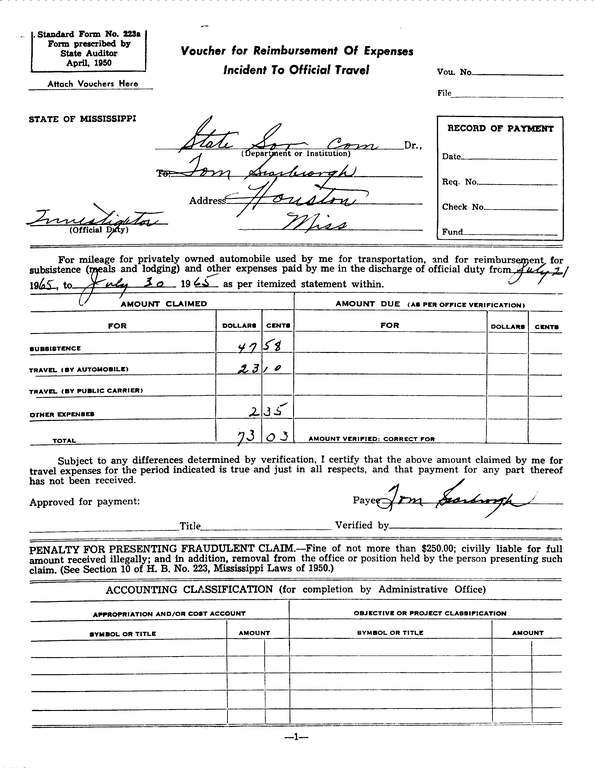 Standard Form No. 223a
Form prescribed by
State Auditor
April, 1950
Attach Vouchers Here
Voucher for Reimbursement Of Expenses
Incident To Official Travel
Vou. No.
File
STATE OF MISSISSIPPI
State Sov Com Dr.,
(Department or Institution)
To: Tom Scarbrough
Address Houston
Miss
Investigator
(Official Duty)
RECORD OF PAYMENT
Date
Req. No.
Check No.
Fund
For mileage for privately owned automobile used by me for transportation, and for reimbursement for
subsistence (meals and lodging) and other expenses paid by me in the discharge of official duty from July 21
1965, to July 30 1965 as per itemized statement within.
AMOUNT CLAIMED AMOUNT DUE (AS PER OFFICE VERIFICATION)
FOR DOLLARS CENTS FOR DOLLARS CENTS
SUBSISTENCE 47 58
TRAVEL (BY AUTOMOBILE) 23 10
TRAVEL (BY PUBLIC CARRIER)
OTHER EXPENSES 2 35
TOTAL 73 03 AMOUNT VERIFIED: CORRECT FOR
Subject to any differences determined by verification, I certify that the above amount claimed by me for
travel expenses for the period indicated is true and just in all respects, and that payment for any part thereof
has not been received.
Approved for payment: Payee Tom Scarbrough
Title Verified by
PENALTY FOR PRESENTING FRAUDULENT CLAIM.—Fine of not more than $250.00; civilly liable for full
amount received illegally; and in addition, removal from the office or position held by the person presenting such
claim. (See Section 10 of H. B. No. 223, Mississippi Laws of 1950.)
ACCOUNTING CLASSIFICATION (for completion by Administrative Office)
APPROPRIATION AND/OR COST ACCOUNT OBJECTIVE OR PROJECT CLASSIFICATION
SYMBOL OR TITLE AMOUNT SYMBOL OR TITLE AMOUNT
—1—